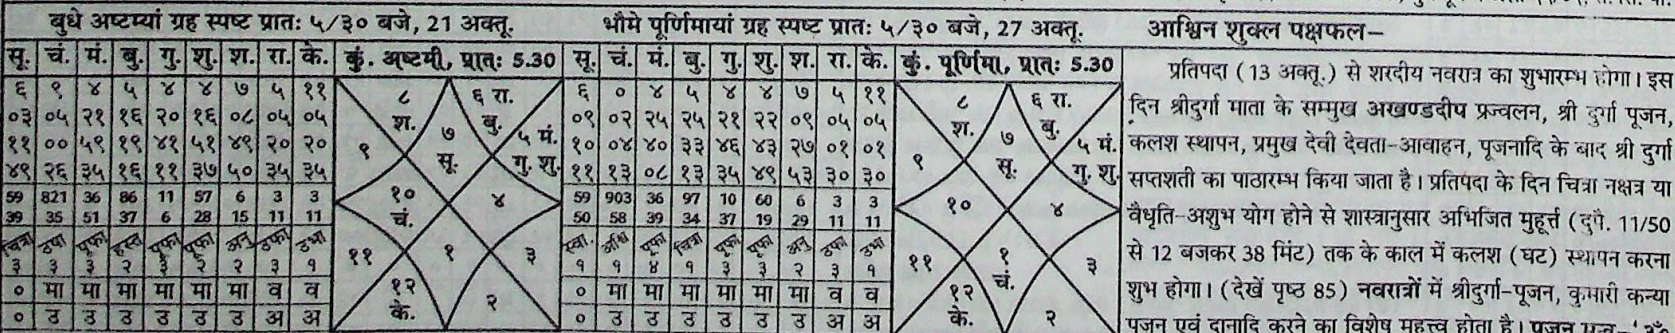 बुधे अष्टम्यां ग्रह स्पष्ट प्रातः ५/३० बजे, 21 अक्तू.
सू. चं. मं. बु. गु. शु. श. रा. के.
६ ९ ४ ५ ४ ४ ७ ५ ११
०३ ०५ २१ १६ २० १६ ०८ ०५ ०५
११ ०० ५९ १९ ४१ ५१ ४९ २० २०
४९ २६ ३५ १६ ११ ३७ ५० ३५ ३५
59 821 36 86 11 57 6 3 3
39 35 51 37 6 28 15 11 11
चित्रा उषा पूफा हस्त पूफा पूफा अनु उफा उभा
३ ३ ३ २ ३ २ २ ३ १
० मा मा मा मा मा मा व व
० उ उ उ उ उ उ अ अ
कुं. अष्टमी, प्रातः 5.30
८ श.
६ रा. बु.
७ सू.
५ मं. गु. शु.
९
१० चं.
४
११
१
३
१२ के.
२
भौमे पूर्णिमायां ग्रह स्पष्ट प्रातः ५/३० बजे, 27 अक्तू.
सू. चं. मं. बु. गु. शु. श. रा. के.
६ ० ४ ५ ४ ४ ७ ५ ११
०९ ०२ २५ २५ २१ २२ ०९ ०५ ०५
१० ०४ ४० ३३ ४६ ४३ २७ ०१ ०१
११ १३ ०८ १३ ३५ ४९ ५३ ३० ३०
59 903 36 97 10 60 6 3 3
50 58 39 34 37 19 29 11 11
स्वा. अश्वि पूफा चित्रा पूफा पूफा अनु उफा उभा
१ १ ४ १ ३ ३ २ ३ १
० मा मा मा मा मा मा व व
० उ उ उ उ उ उ अ अ
कुं. पूर्णिमा, प्रातः 5.30
८ श.
६ रा. बु.
७ सू.
५ मं. गु. शु.
९
१०
४
११
१ चं.
३
१२ के.
२
आश्विन शुक्ल पक्षफल–
प्रतिपदा (13 अक्तू.) से शरदीय नवरात्र का शुभारम्भ होगा। इस
दिन श्रीदुर्गा माता के सम्मुख अखण्डदीप प्रज्वलन, श्री दुर्गा पूजन,
कलश स्थापन, प्रमुख देवी देवता-आवाहन, पूजनादि के बाद श्री दुर्गा
सप्तशती का पाठारम्भ किया जाता है। प्रतिपदा के दिन चित्रा नक्षत्र या
वैधृति-अशुभ योग होने से शास्त्रानुसार अभिजित मुहूर्त्त (दुपै. 11/50
से 12 बजकर 38 मिंट) तक के काल में कलश (घट) स्थापन करना
शुभ होगा। (देखें पृष्ठ 85) नवरात्रों में श्रीदुर्गा-पूजन, कुमारी कन्या
पूजन एवं दानादि करने का विशेष महत्त्व होता है। पूजन मन्त्र-